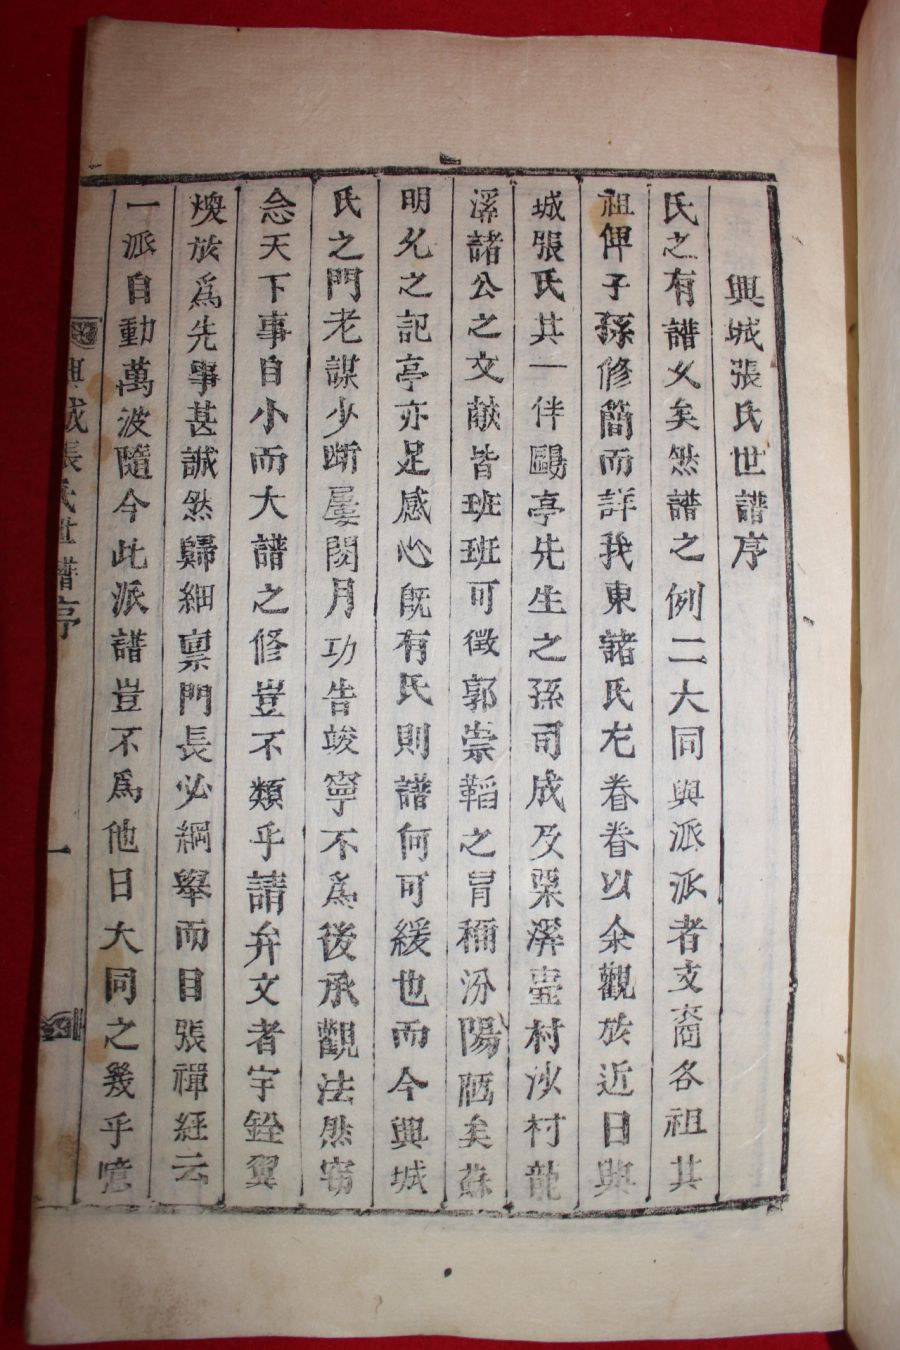 興城張氏世譜序
氏之有譜久矣然譜之例二大同與派派者支裔各祖其
祖俾子孫修簡而詳我東諸氏尤眷眷以余觀族近日興
城張氏其一伴鷗亭先生之孫司成及巢溪壺村沙村龍
溪諸公之文献皆班班可徵郭崇韜之冒稱汾陽陋矣蘇
明允之記亭亦足感心旣有氏則譜何可緩也而今興城
氏之門老謀少斷屢閱月功告竣寧不爲後承觀法然窃
念天下事自小而大譜之修豈不類乎請弁文者宇銓翼
煥放爲先事甚誠然歸細稟門長必綱擧而目張禪經云
一派自動萬波隨今此派譜豈不爲他日大同之幾乎噫
興城張氏世譜序
一